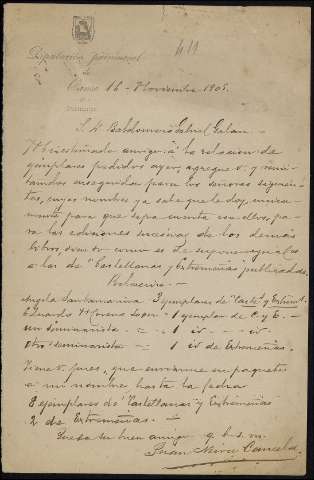 411
Diputación provincial
de
16 - Noviembre 1905.
S. D. Baldomero Gabriel Galan
Mi estimado amigo: a la relacion de
ejemplares pedidos ayer, agregue V. y remi-
enseguida para los señores siguien-
tes, cuyos nombres ya sabe que le doy, unica-
mente para que sepa cuenta con ellos, pa-
ra las ediciones sucesivas de los demás
libros, como es de suponer,
a las de "Castellanas y Extremeñas" publicadas.
Relacion. -
Angela Santamarina 3 ejemplares de "Caste.s y Extrem.s
Eduardo 1 ejemplar de C. y E. -
un seminarista - " - 1 id - " - id
otro seminarista - 1 id de Extremeñas.
Tiene V. pues, que enviarme en paquetes
a mi nombre hasta la fecha
8 ejemplares de "Castellanas" y Extremeñas
2 de Extremeñas. -
Queda su buen amigo q. b. s. m.
Juan Neira Cancela